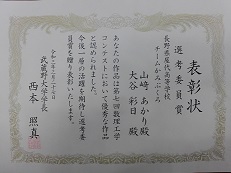 表彰状
選考委員賞
長野県屋代高等学校
チームかみぶくろ
山﨑 あかり殿
大谷 彩日殿
あなたの作品は第七回数理工学
コンテストにおいて優秀な作品
と認められました。
今後一層の活躍を期待し選考委
員賞を贈り表彰いたします。
武蔵野大学学長
西本 照真